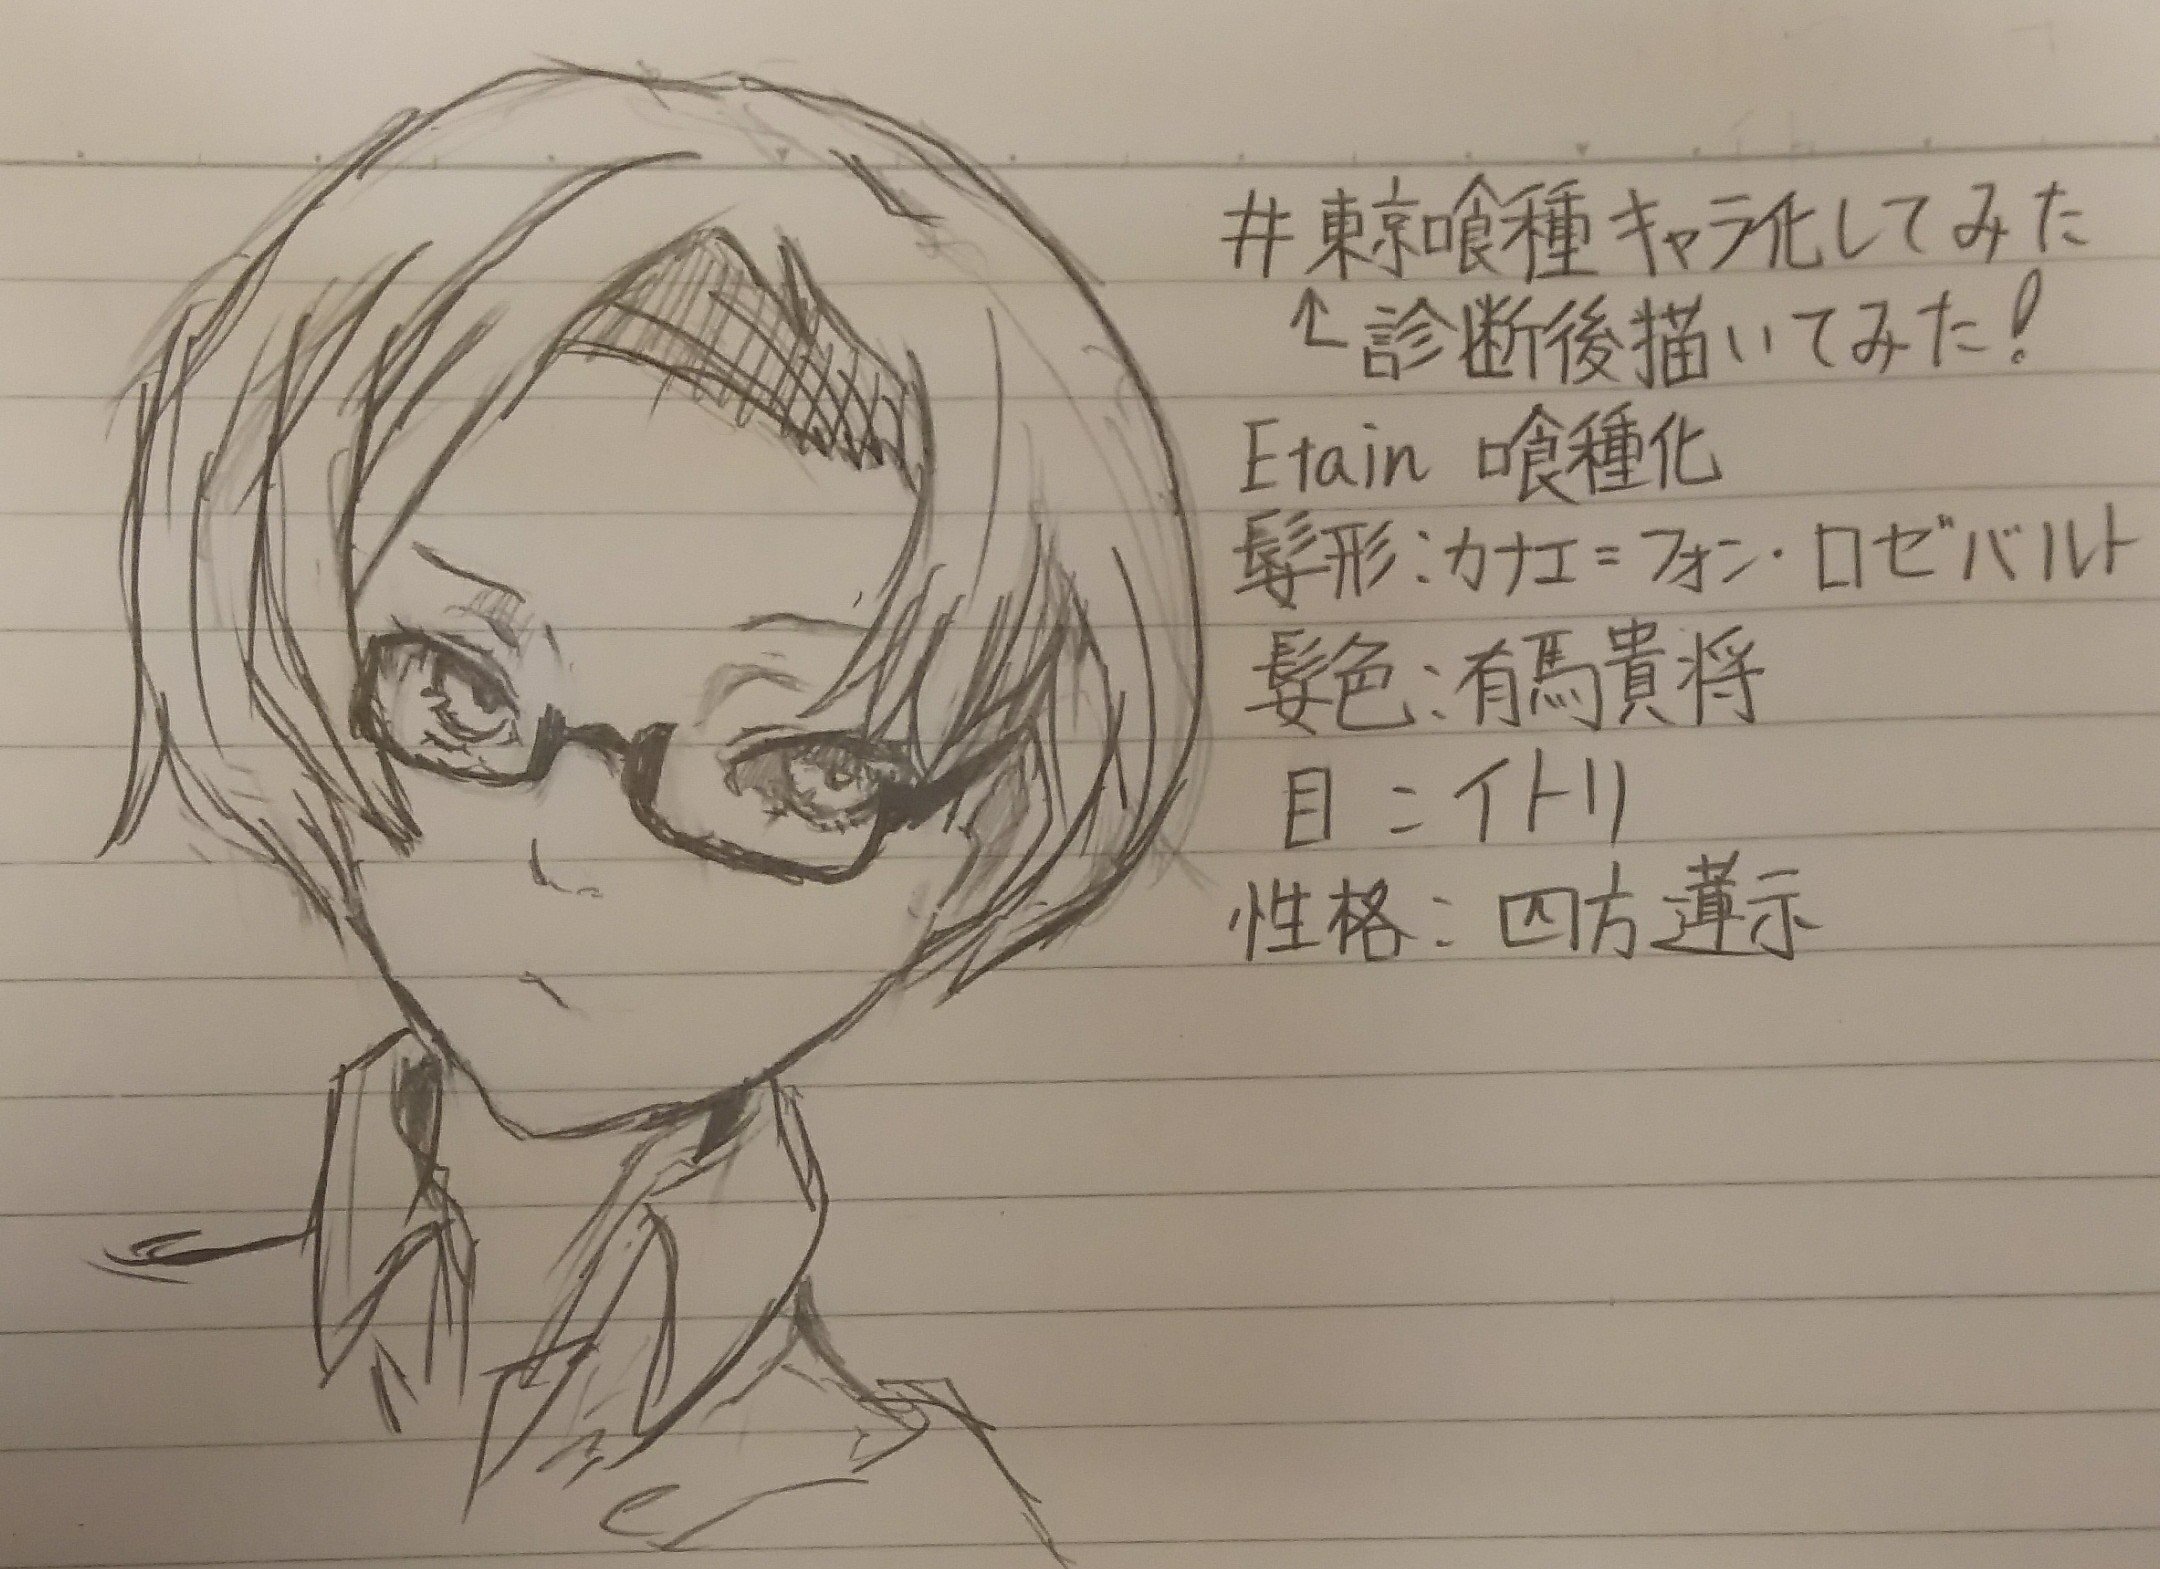 #東京喰種キャラ化してみた
↑診断後描いてみた!
Etain 喰種化
髪形:カナエ=フォン・ロゼバルト
髪色:有馬貴将
目:イトリ
性格:四方蓮示